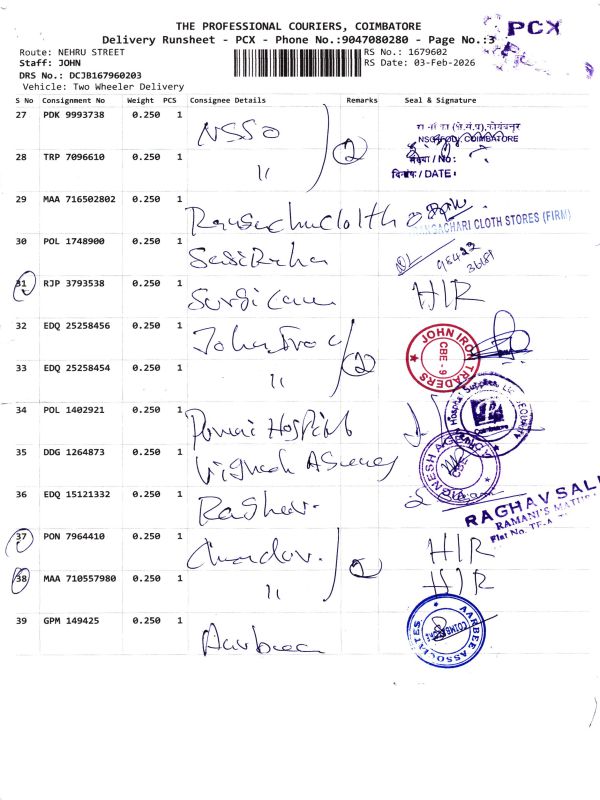 THE PROFESSIONAL COURIERS, COIMBATORE
PCX
Delivery Runsheet - PCX - Phone No.:9047080280 - Page No.:3
Route: NEHRU STREET
RS No.: 1679602
Staff: JOHN
RS Date: 03-Feb-2026
DRS No.: DCJB167960203
Vehicle: Two Wheeler Delivery
S No Consignment No Weight PCS Consignee Details Remarks Seal & Signature
27 PDK 9993738 0.250 1 NSSO 2
COIMBATORE
28 TRP 7096610 0.250 1 "
/ No:
दिनांक / DATE:
29 MAA 716502802 0.250 1
RANGACHARI CLOTH STORES (FIRM)
30 POL 1748900 0.250 1
98423
31 RJP 3793538 0.250 1 HIR
32 EDQ 25258456 0.250 1 2
JOHN IRON TRADERS CBE - 9
33 EDQ 25258454 0.250 1 "
34 POL 1402921 0.250 1 Hospital
Coimbatore
35 DDG 1264873 0.250 1 Vignesh Agency
VIGNESH AGENCY CBE
36 EDQ 15121332 0.250 1 Raghav
RAGHAV SAL
RAMANI'S
Flat No.
37 PON 7964410 0.250 1 2 HIR
38 MAA 710557980 0.250 1 " HIR
39 GPM 149425 0.250 1 Aarbee
AARBEE ASSOCIATES COIMBATORE